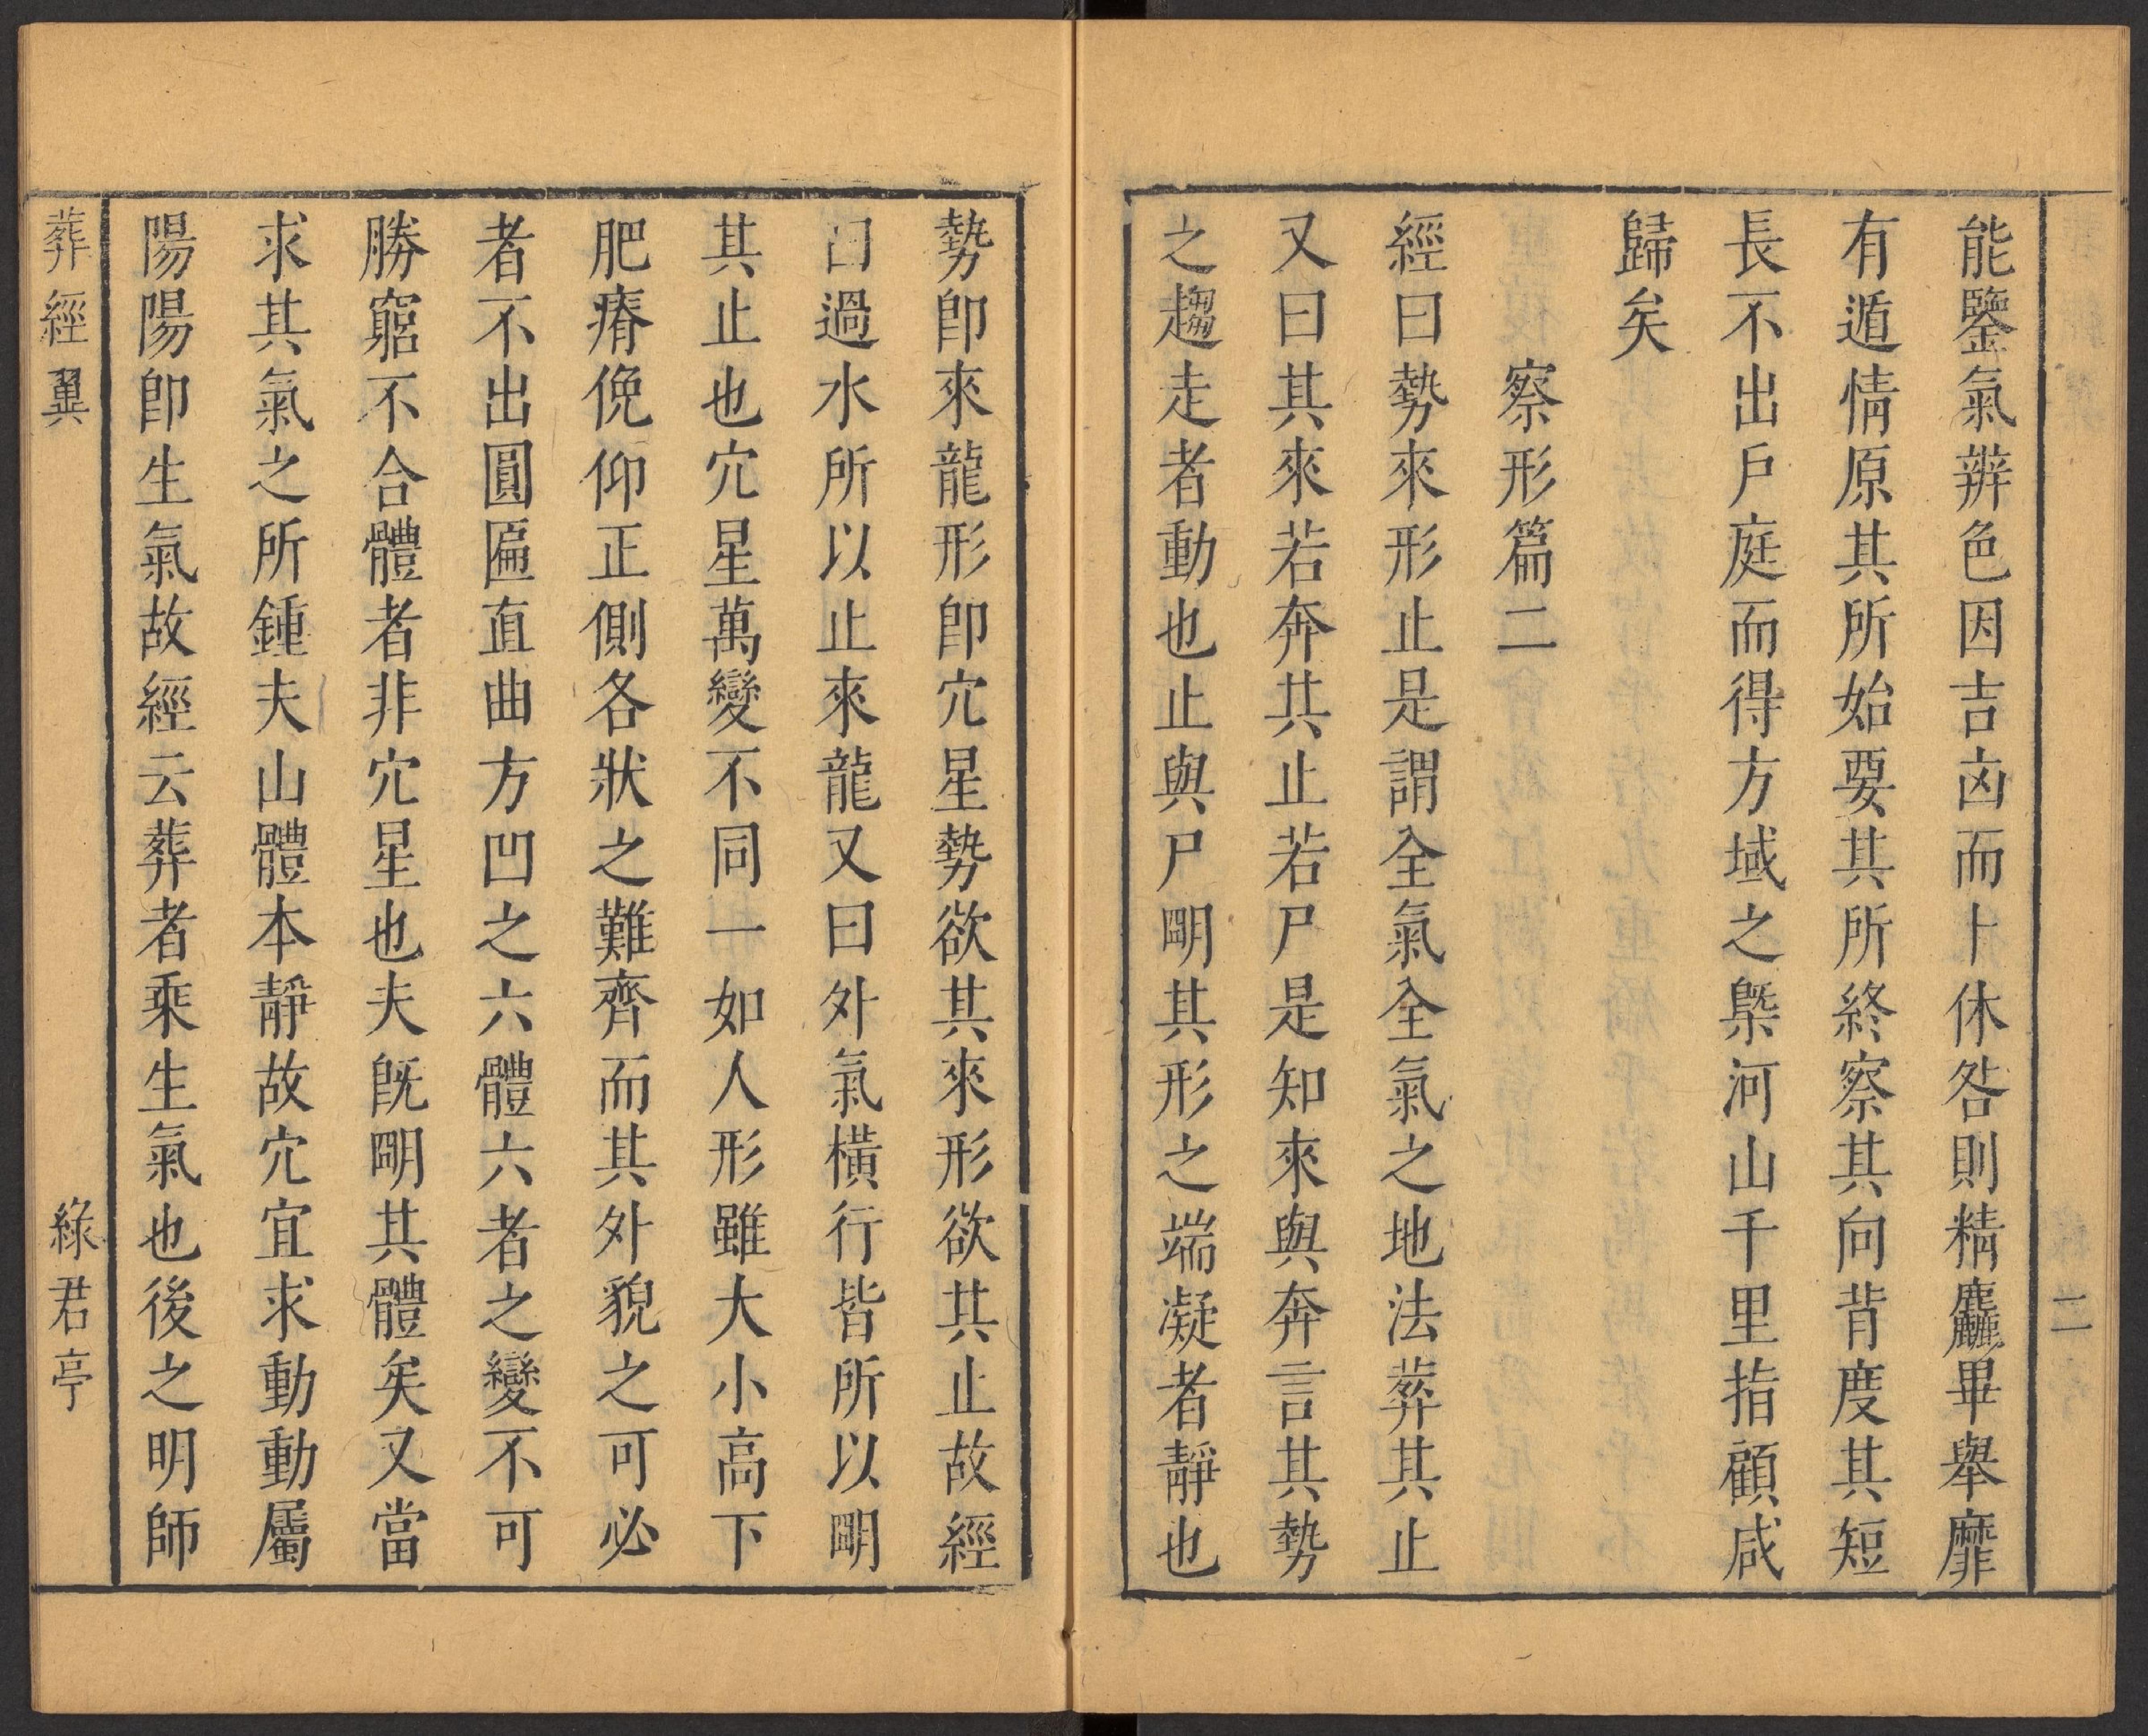 二
能鑒氣辨色因吉凶而卜休咎則精麤畢舉靡
有遁情原其所始要其所終察其向背度其短
長不出戶庭而得方域之槩河山千里指顧咸
歸矣
察形篇二
經曰勢來形止是謂全氣全氣之地法葬其止
又曰其來若奔其止若尸是知來與奔言其勢
之趨走者動也止與尸明其形之端凝者靜也
勢卽來龍形卽穴星勢欲其來形欲其止故經
曰過水所以止來龍又曰外氣橫行皆所以明
其止也穴星萬變不同一如人形雖大小高下
肥瘠俛仰正側各狀之難齊而其外貌之可必
者不出圓匾直曲方凹之六體六者之變不可
勝窮不合體者非穴星也夫旣明其體矣又當
求其氣之所鍾夫山體本靜故穴宜求動動屬
陽陽卽生氣故經云葬者乘生氣也後之明師
葬經翼 綠君亭